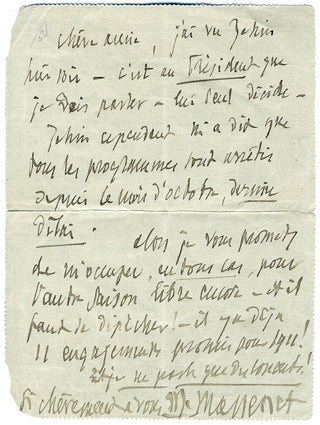 chère amie, j'ai vu Jehin
hier soir – c'est au Président que
je dois parler – lui seul décide –
Jehin cependant m'a dit que
tous les programmes sont arrêtés
depuis le mois d'octobre, dernier
délai. alors je vous promets
de m'occuper, en tous cas, pour
l'autre saison, libre encore – et il
faut se dépêcher! – il y a déjà
11 engagements promis pour 1911!
Et je ne parle que des concerts!
Si chèrement à vous M. Massenet